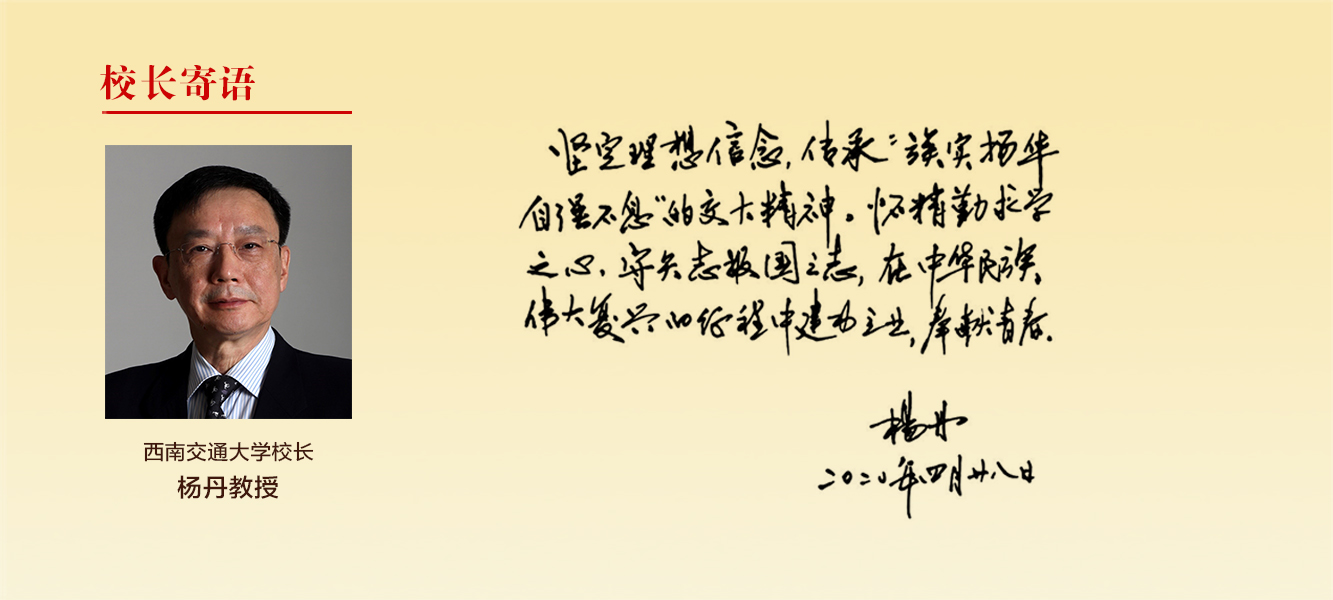 校长寄语
西南交通大学校长
杨丹教授
坚定理想信念，传承“竢实扬华
自强不息”的交大精神。怀精勤求学
之心、守矢志报国之志，在中华民族
伟大复兴的征程中建功立业，奉献青春。
杨丹
二〇二〇年四月廿八日